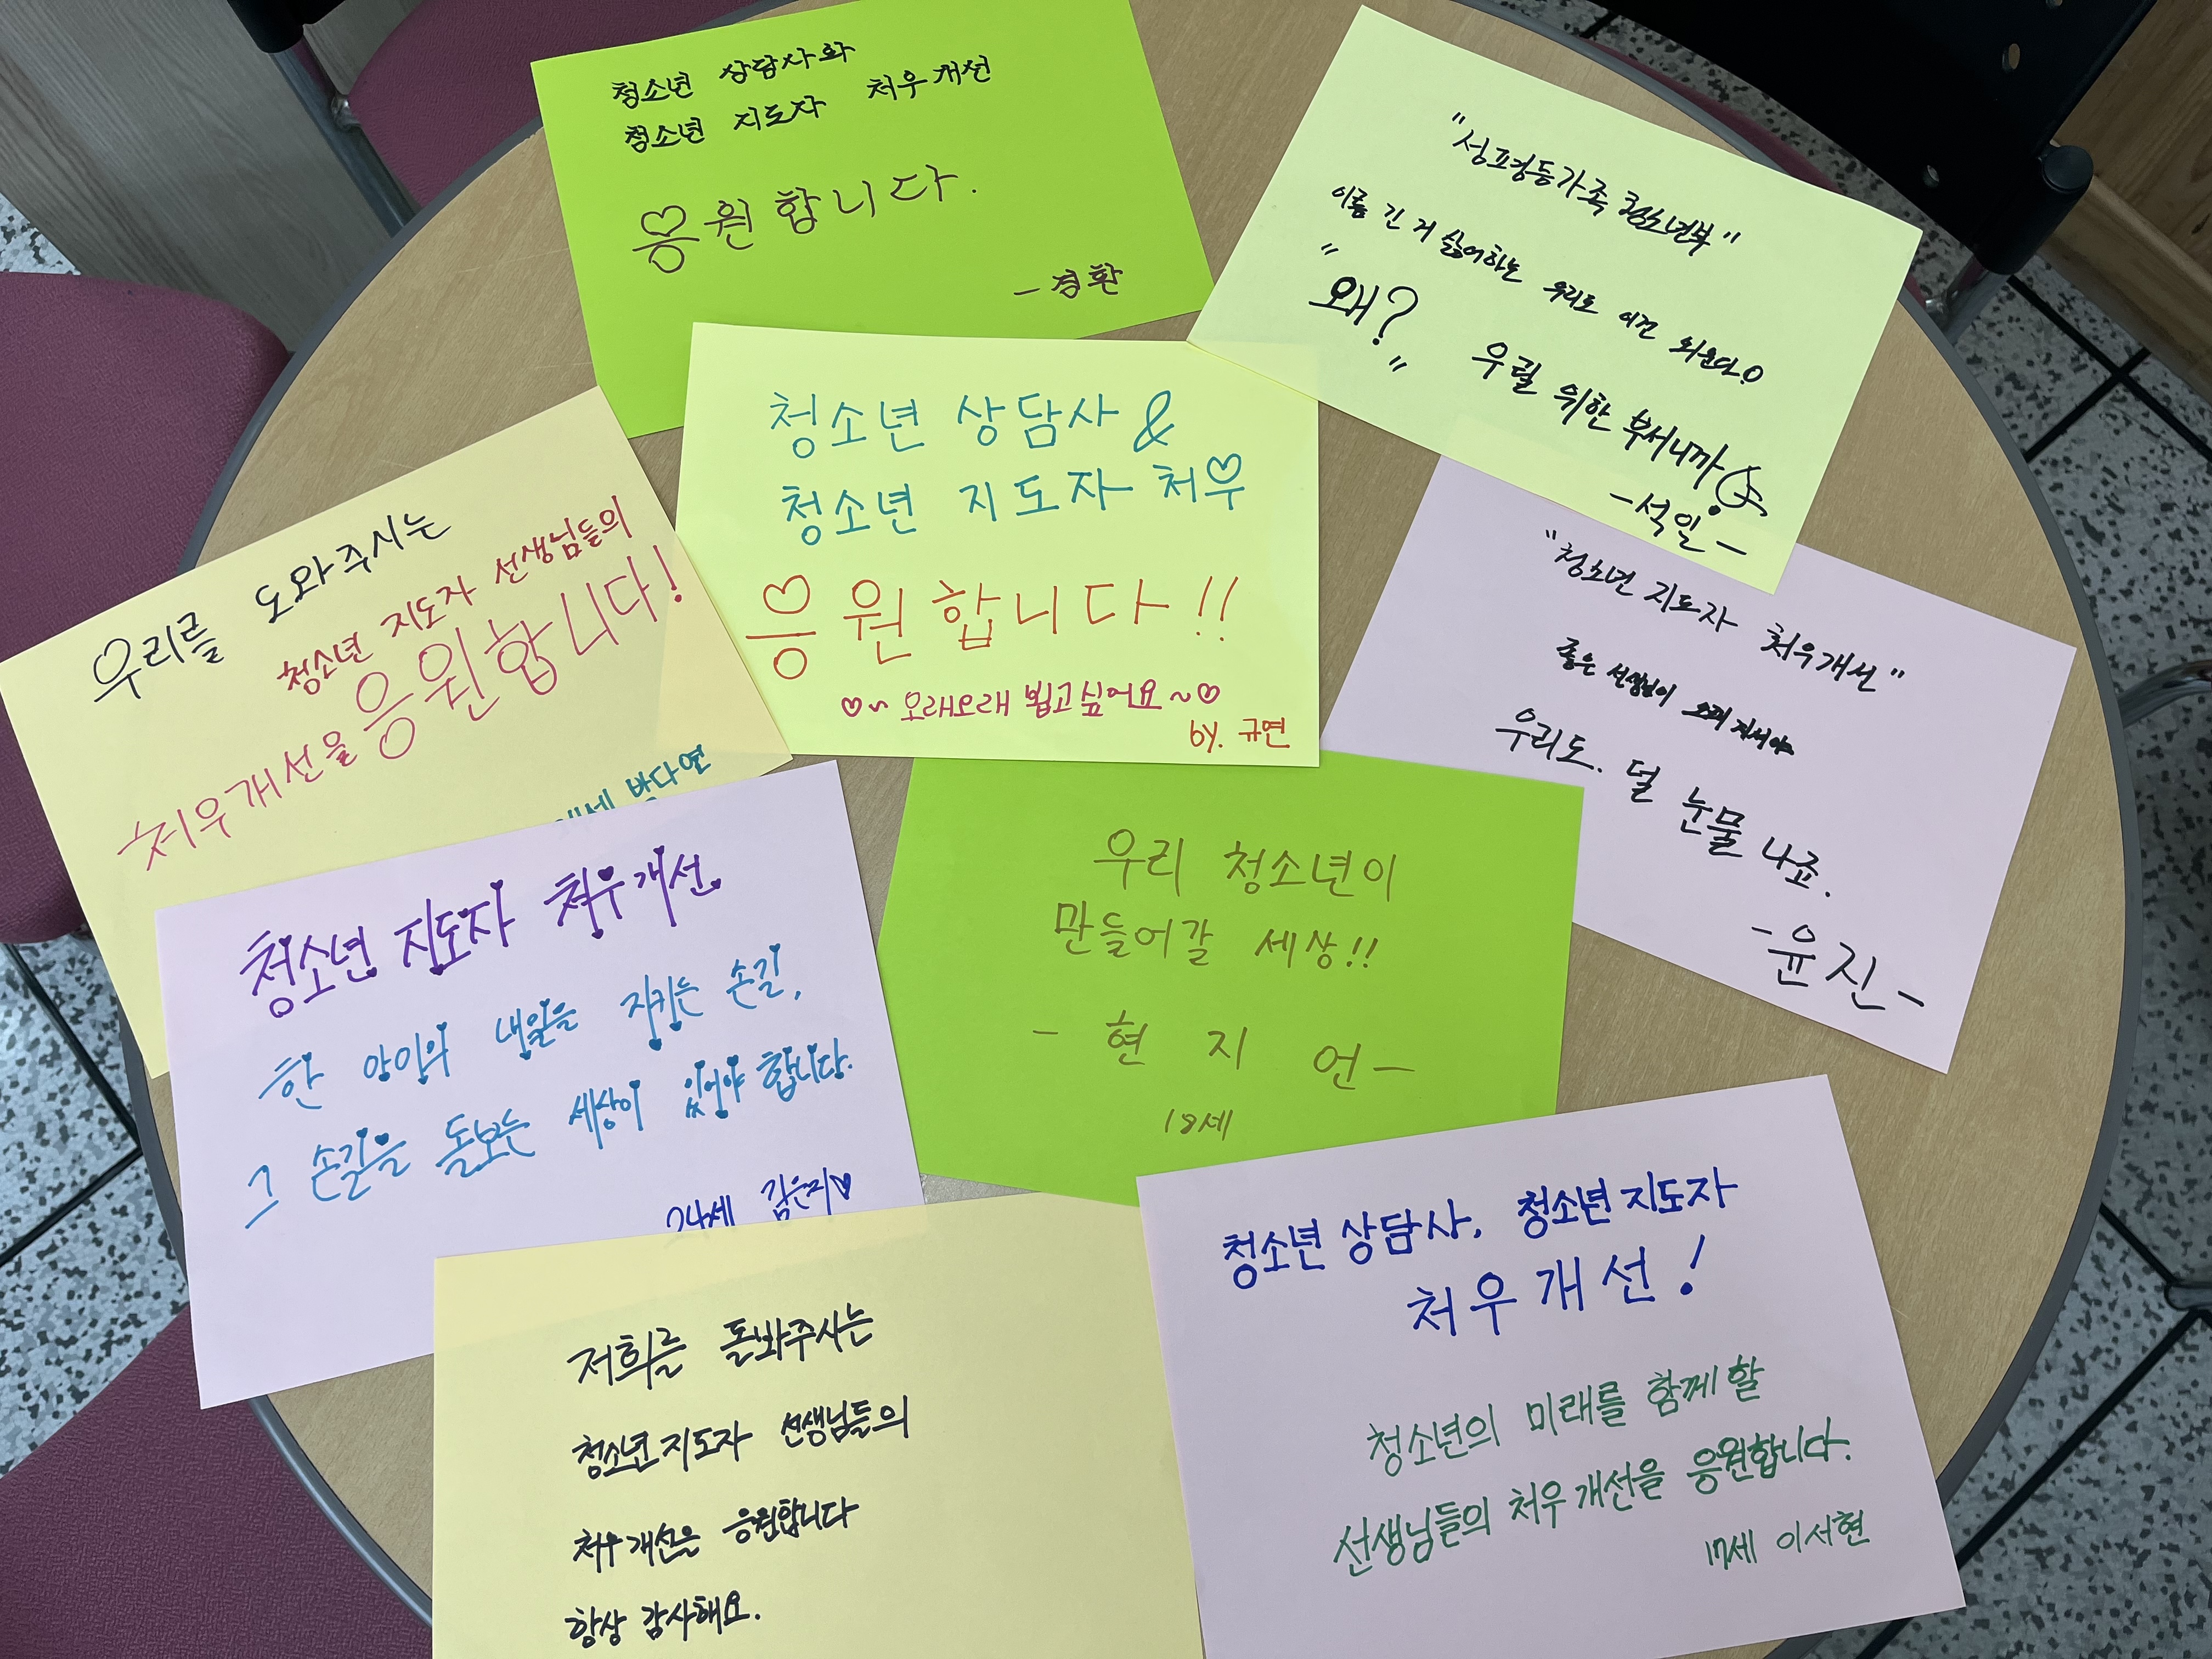 청소년 상담사와
청소년 지도자 처우개선
응원합니다.
- 경환
"성평등가족 청소년부"
이름 긴 거 싫어하는 우리도 이건 외운다!
"왜?" 우릴 위한 부서니까!
- 석일 -
우리를 도와주시는
청소년 지도자 선생님들의
처우개선을 응원합니다!
방다연
청소년 상담사 &
청소년 지도자 처우
응원합니다!!
♡~ 오래오래 뵙고싶어요~♡
by. 규연
"청소년 지도자 처우개선"
좋은 선생님이 오래 계셔야
우리도. 덜 눈물 나죠.
- 윤진 -
청소년 지도자 처우개선
한 아이의 내일을 지키는 손길,
그 손길을 돌보는 세상이 있어야 합니다.
24세 김은지♥
우리 청소년이
만들어갈 세상!!
- 현 지 언 -
18세
저희를 돌봐주시는
청소년지도자 선생님들의
처우개선을 응원합니다
항상 감사해요.
청소년 상담사, 청소년 지도자
처우개선!
청소년의 미래를 함께 할
선생님들의 처우개선을 응원합니다.
17세 이서현